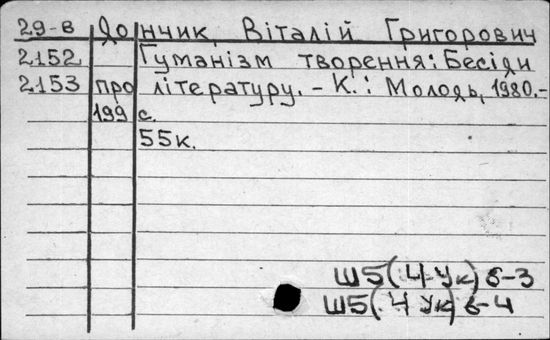 29-в Дончик, Віталій Григорович
2152 Гуманізм творення: Бесіди
2153 про літературу. - К.: Молодь, 1980. -
199 с.
55к.
Ш5(4Ук)6-3
Ш5(4Ук)6-4